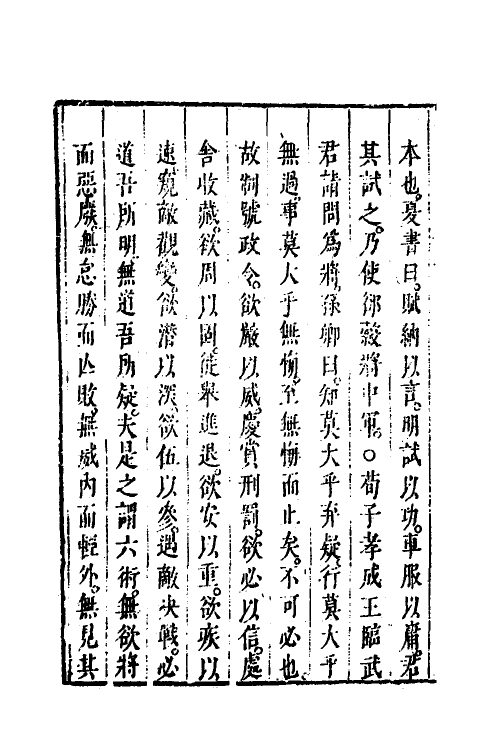 本也。夏書曰。賦納以言。明試以功。車服以庸。君
其試之。乃使郤縠將中軍。○荀子孝成王臨武
君請問為將。孫卿曰。知莫大乎弃疑。行莫大乎
無過。事莫大乎無悔。至無悔而止矣。不可必也。
故制號政令。欲嚴以威。慶賞刑罰。欲必以信。處
舍收藏。欲周以固。徙舉進退。欲安以重。欲疾以
速。窺敵觀變。欲潛以深。欲伍以參。遇敵決戰。必
道吾所明。無道吾所疑。夫是之謂六術。無欲將
而惡廢。無怠勝而亡敗。無威內而輕外。無見其